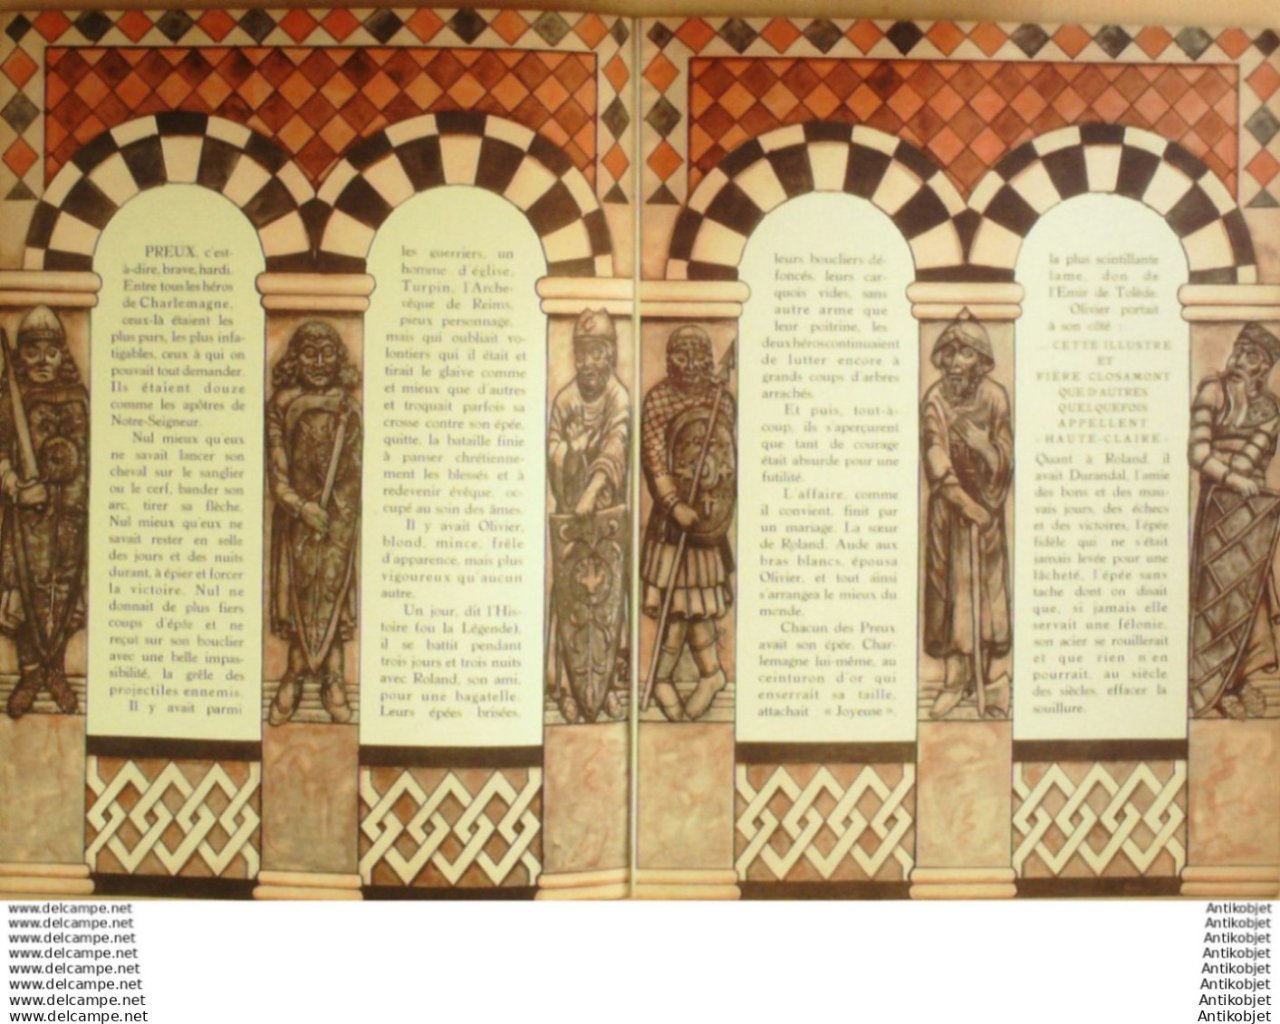 PREUX, c'est-
à-dire, brave, hardi.
Entre tous les héros
de Charlemagne,
ceux-là étaient les
plus purs, les plus infa-
tigables, ceux à qui on
pouvait tout demander.
Ils étaient douze
comme les apôtres de
Notre-Seigneur.
Nul mieux qu'eux
ne savait lancer son
cheval sur le sanglier
ou le cerf, bander son
arc, tirer sa flèche.
Nul mieux qu'eux ne
savait rester en selle
des jours et des nuits
durant, à épier et forcer
la victoire. Nul ne
donnait de plus fiers
coups d'épée et ne
reçut sur son bouclier
avec une belle impas-
sibilité, la grêle des
projectiles ennemis.
Il y avait parmi
les guerriers, un
homme d'église,
Turpin, l'Arche-
vêque de Reims,
pieux personnage,
mais qui oubliait vo-
lontiers qui il était et
tirait le glaive comme
et mieux que d'autres
et troquait parfois sa
crosse contre son épée,
quitte, la bataille finie
à panser chrétienne-
ment les blessés et à
redevenir évêque, oc-
cupé au soin des âmes.
Il y avait Olivier,
blond, mince, frêle
d'apparence, mais plus
vigoureux qu'aucun
autre.
Un jour, dit l'His-
toire (ou la Légende),
il se battit pendant
trois jours et trois nuits
avec Roland, son ami,
pour une bagatelle.
Leurs épées brisées,
leurs boucliers dé-
foncés, leurs car-
quois vides, sans
autre arme que
leur poitrine, les
deux héros continuaient
de lutter encore à
grands coups d'arbres
arrachés.
Et puis, tout-à-
coup, ils s'aperçurent
que tant de courage
était absurde pour une
futilité.
L'affaire, comme
il convient, finit par
un mariage. La sœur
de Roland, Aude aux
bras blancs, épousa
Olivier, et tout ainsi
s'arrangea le mieux du
monde.
Chacun des Preux
avait son épée. Char-
lemagne lui-même, au
ceinturon d'or qui
enserrait sa taille,
attachait « Joyeuse »,
la plus scintillante
lame, don de
l'Emir de Tolède.
Olivier portait
à son côté :
... CETTE ILLUSTRE
ET
FIÈRE CLOSAMONT
QUE D'AUTRES
QUELQUEFOIS
APPELLENT
« HAUTE-CLAIRE »
Quant à Roland, il
avait Durandal, l'amie
des bons et des mau-
vais jours, des échecs
et des victoires, l'épée
fidèle qui ne s'était
jamais levée pour une
lâcheté, l'épée sans
tache dont on disait
que, si jamais elle
servait une félonie,
son acier se rouillerait
et que rien n'en
pourrait, au siècle
des siècles, effacer la
souillure.
www.delcampe.net
www.delcampe.net
www.delcampe.net
www.delcampe.net
www.delcampe.net
www.delcampe.net
www.delcampe.net
www.delcampe.net
Antikobjet
Antikobjet
Antikobjet
Antikobjet
Antikobjet
Antikobjet
Antikobjet
Antikobjet